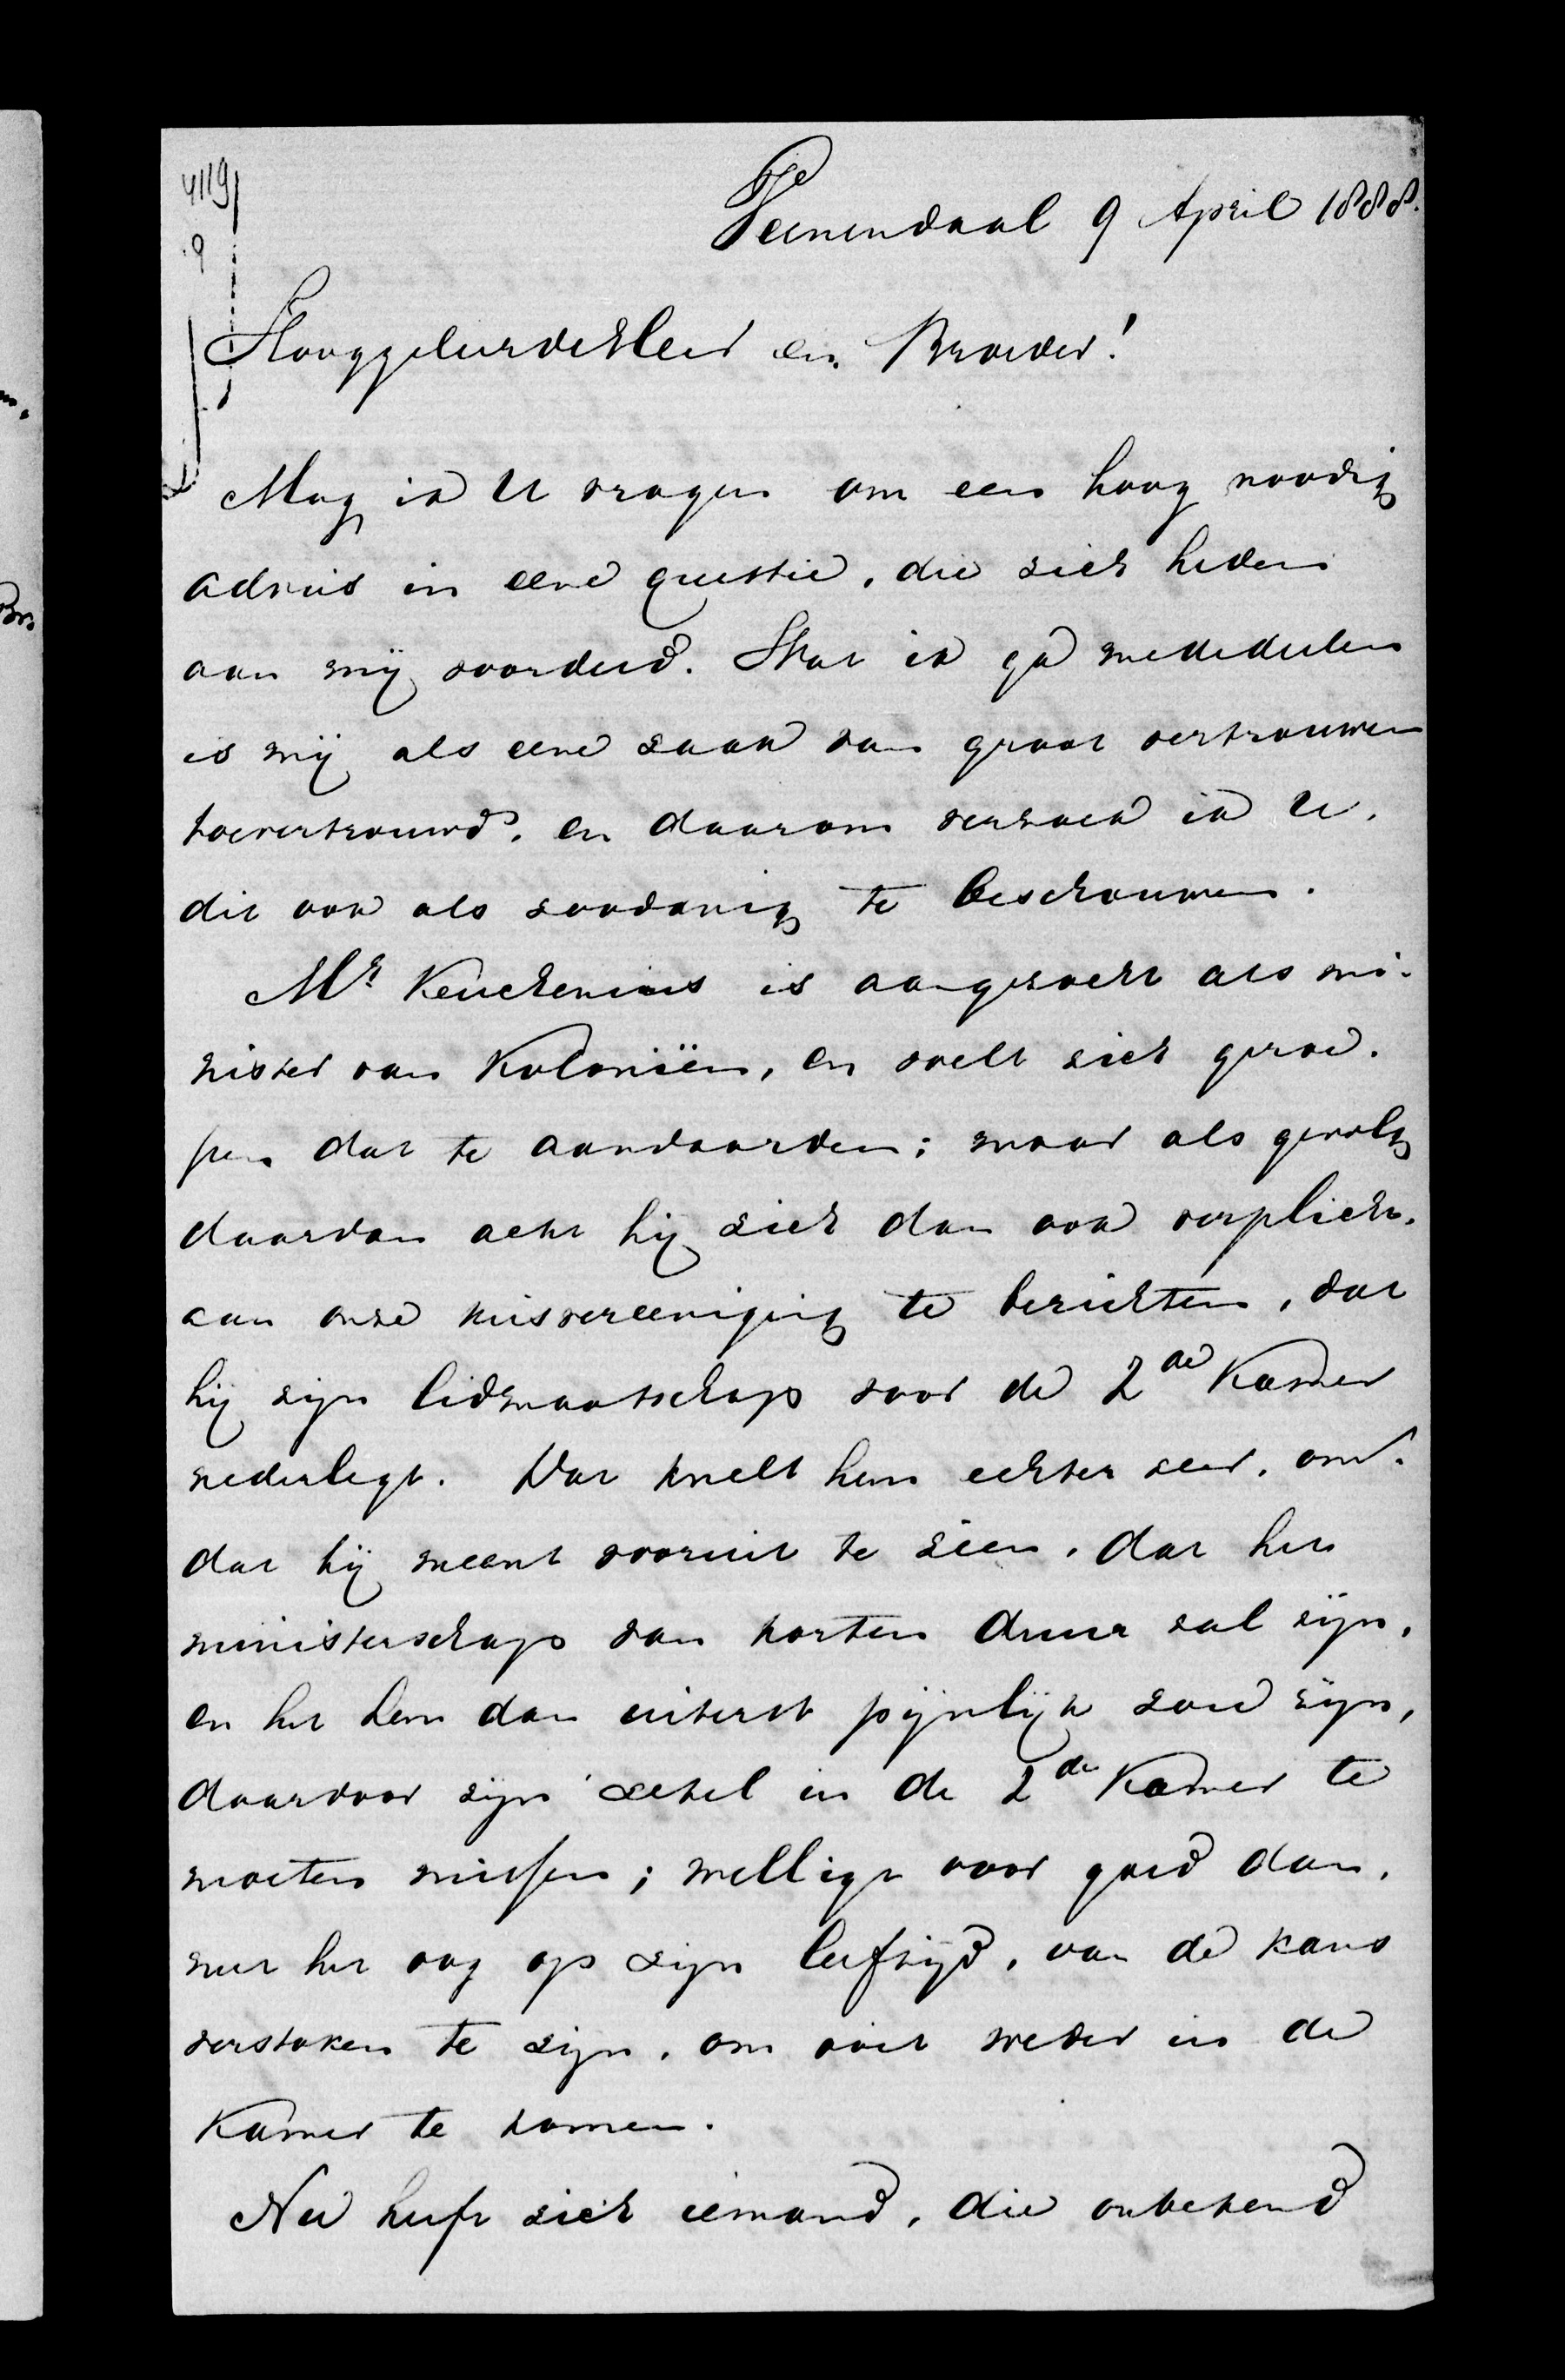 4119
9
Veenendaal 9 April 1888.
Hooggeleerde Heer en Broeder!
Mag ik U vragen om een hoog noodig
advies in eene questie, die zich heden
aan mij voordeed. Wat ik ga mededeelen
is mij als eene zaak van groot vertrouwen
toevertrouwd, en daarom verzoek ik U,
dit ook als zoodanig te beschouwen.
Mr Keuchenius is aangezocht als mi-
nister van Koloniën, en voelt zich geroe-
pen dat te aanvaarden; maar als gevolg
daarvan acht hij zich dan ook verplicht,
aan onze kiesvereeniging te berichten, dat
hij zijn lidmaatschap voor de 2de Kamer
nederlegt. Dat knelt hem echter zeer, om-
dat hij meent vooruit te zien, dat het
ministerschap van korten duur zal zijn,
en het hem dan uiterst pijnlijk zou zijn,
daardoor zijn zetel in de 2de Kamer te
moeten missen; welligt voor goed dan,
met het oog op zijn leeftijd, van de kans
verstoken te zijn, om ooit weder in de
Kamer te komen.
Nu heeft zich iemand, die onbekend